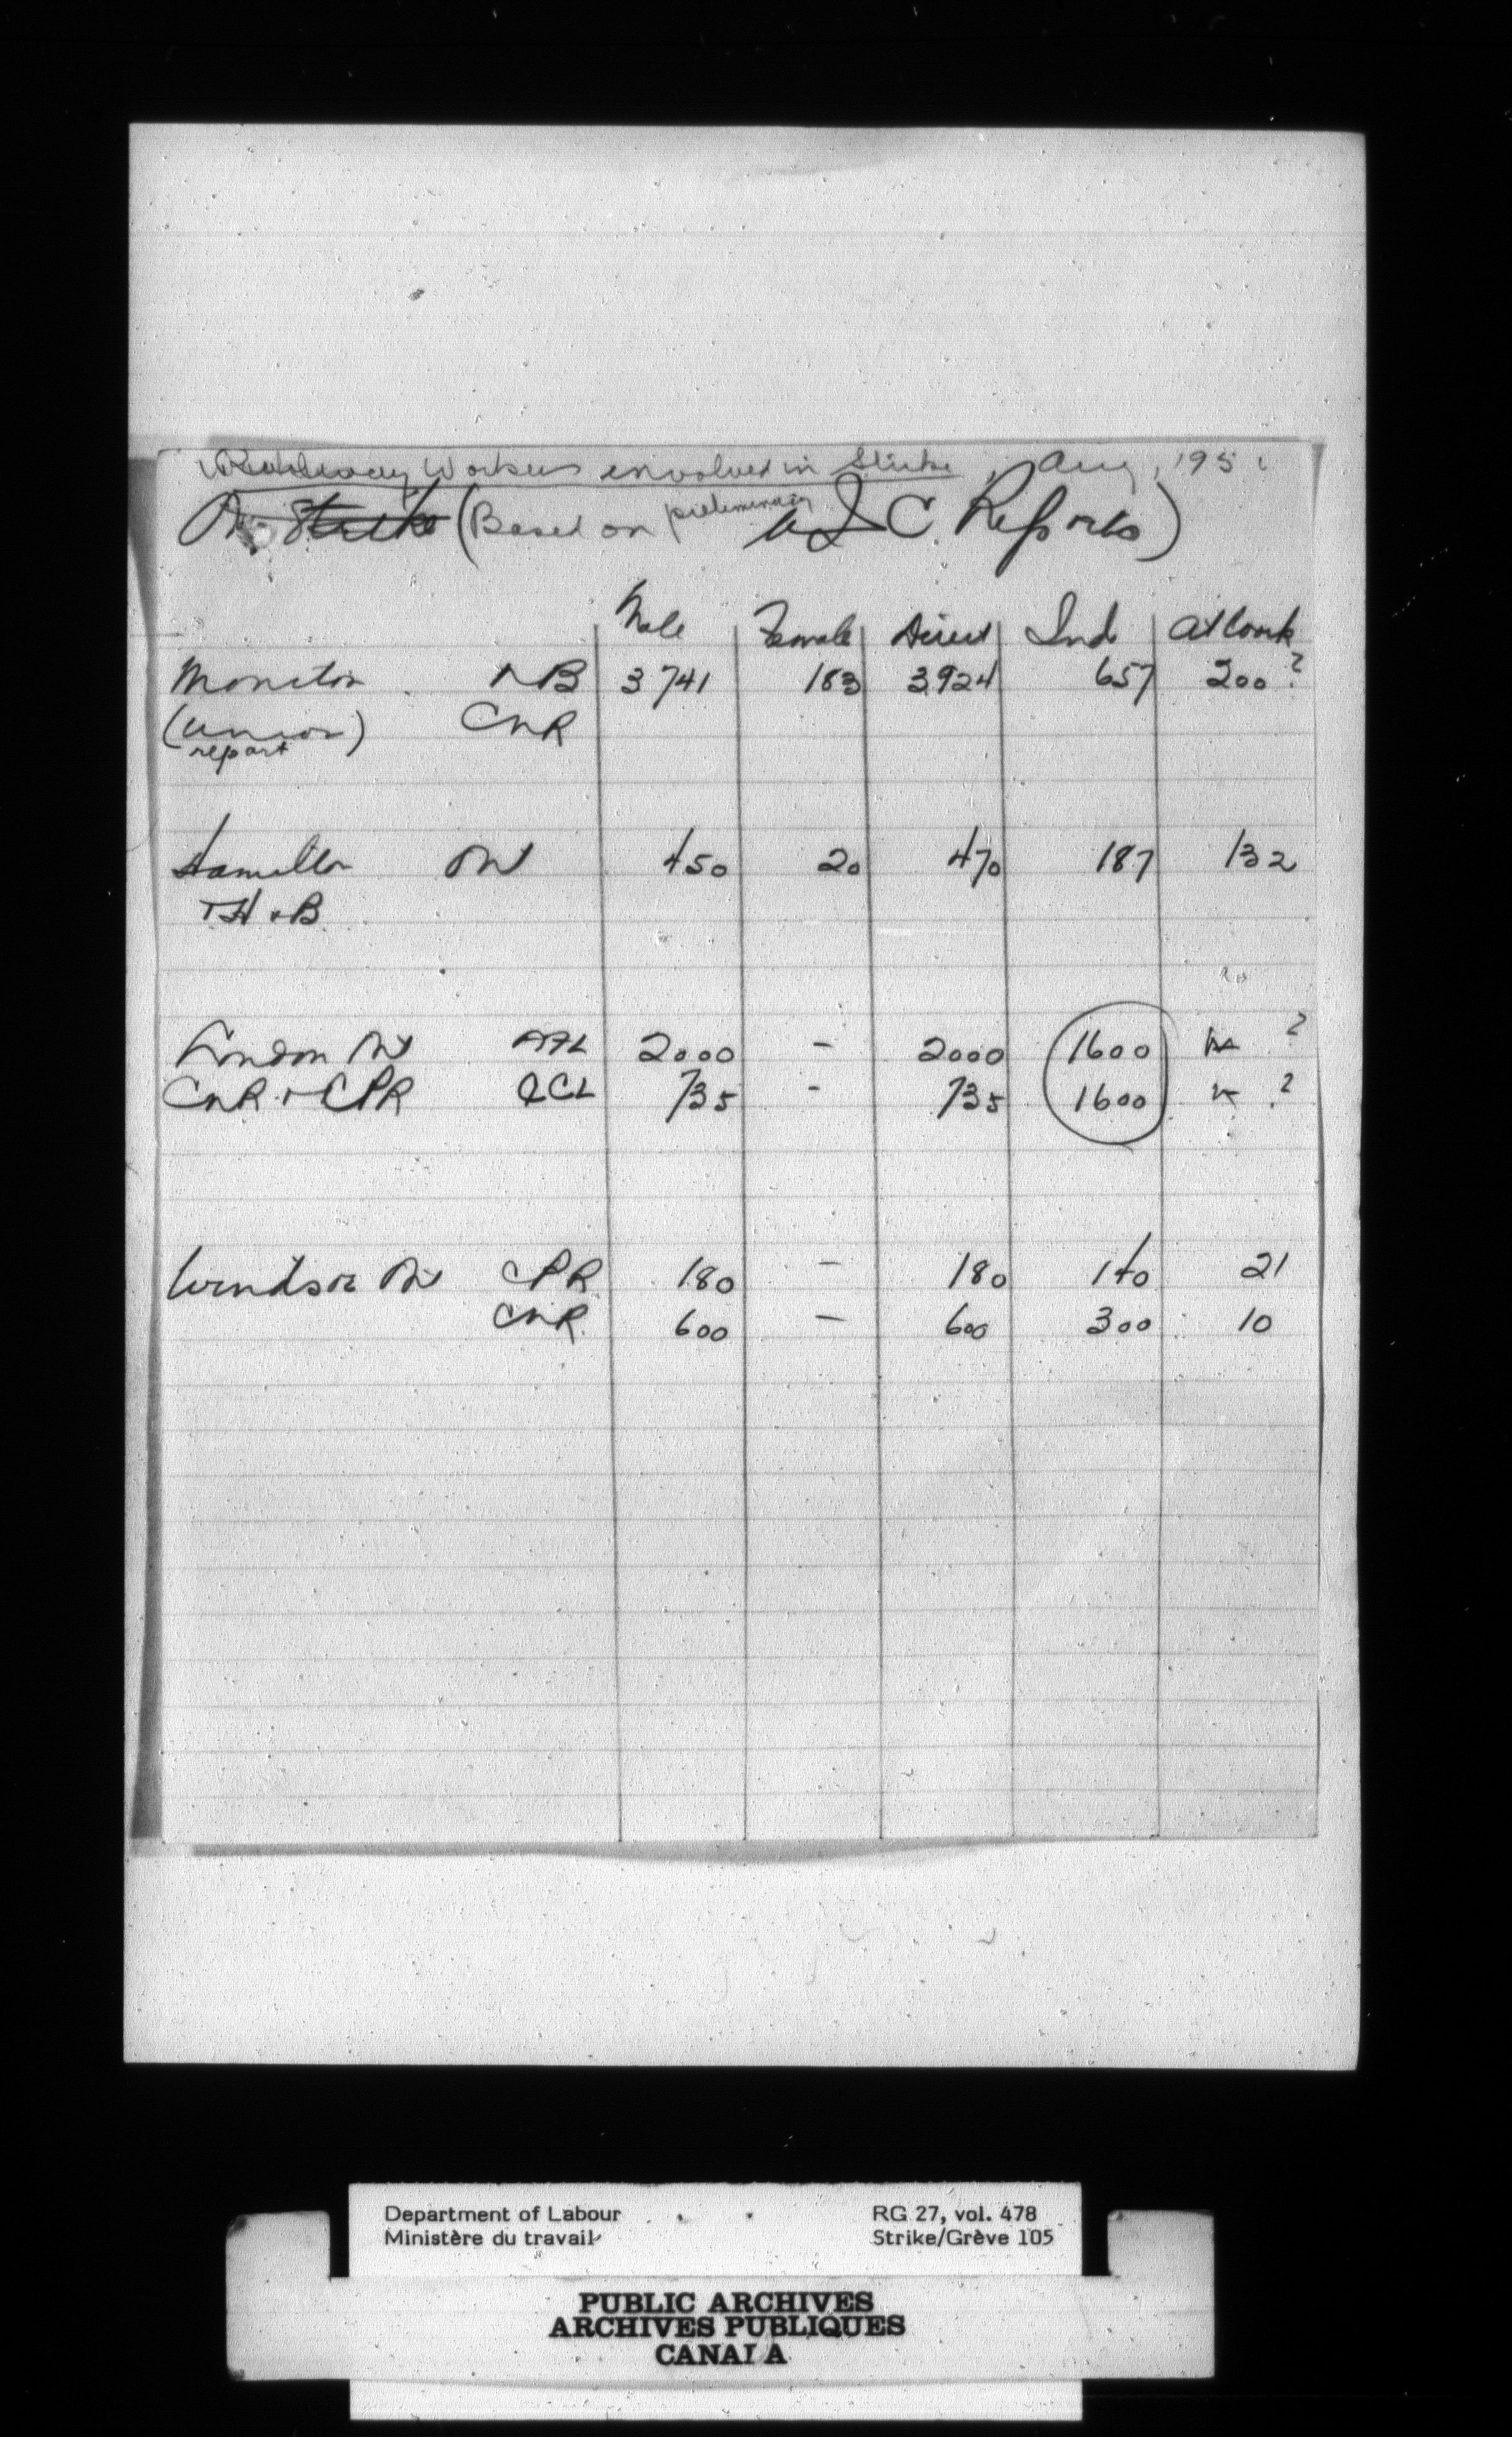 Railway Workers envolved in Strike, Aug, 195
(Based on preliminary U I C. Reports)
Male Female Direct Ind At Work
Moncton NB 3741 183 3924 657 200?
(Union) CNR
report
Hamilton Ont 450 20 470 187 132
TH & B
London Ont AFL 2000 - 2000 1600 ?
CNR & CPR CCL 735 - 735 1600 ?
Windsor Ont CPR 180 - 180 140 21
CNR. 600 - 600 300 10
Department of Labour RG 27, vol. 478
Ministère du travail Strike/Grève 105
PUBLIC ARCHIVES
ARCHIVES PUBLIQUES
CANADA